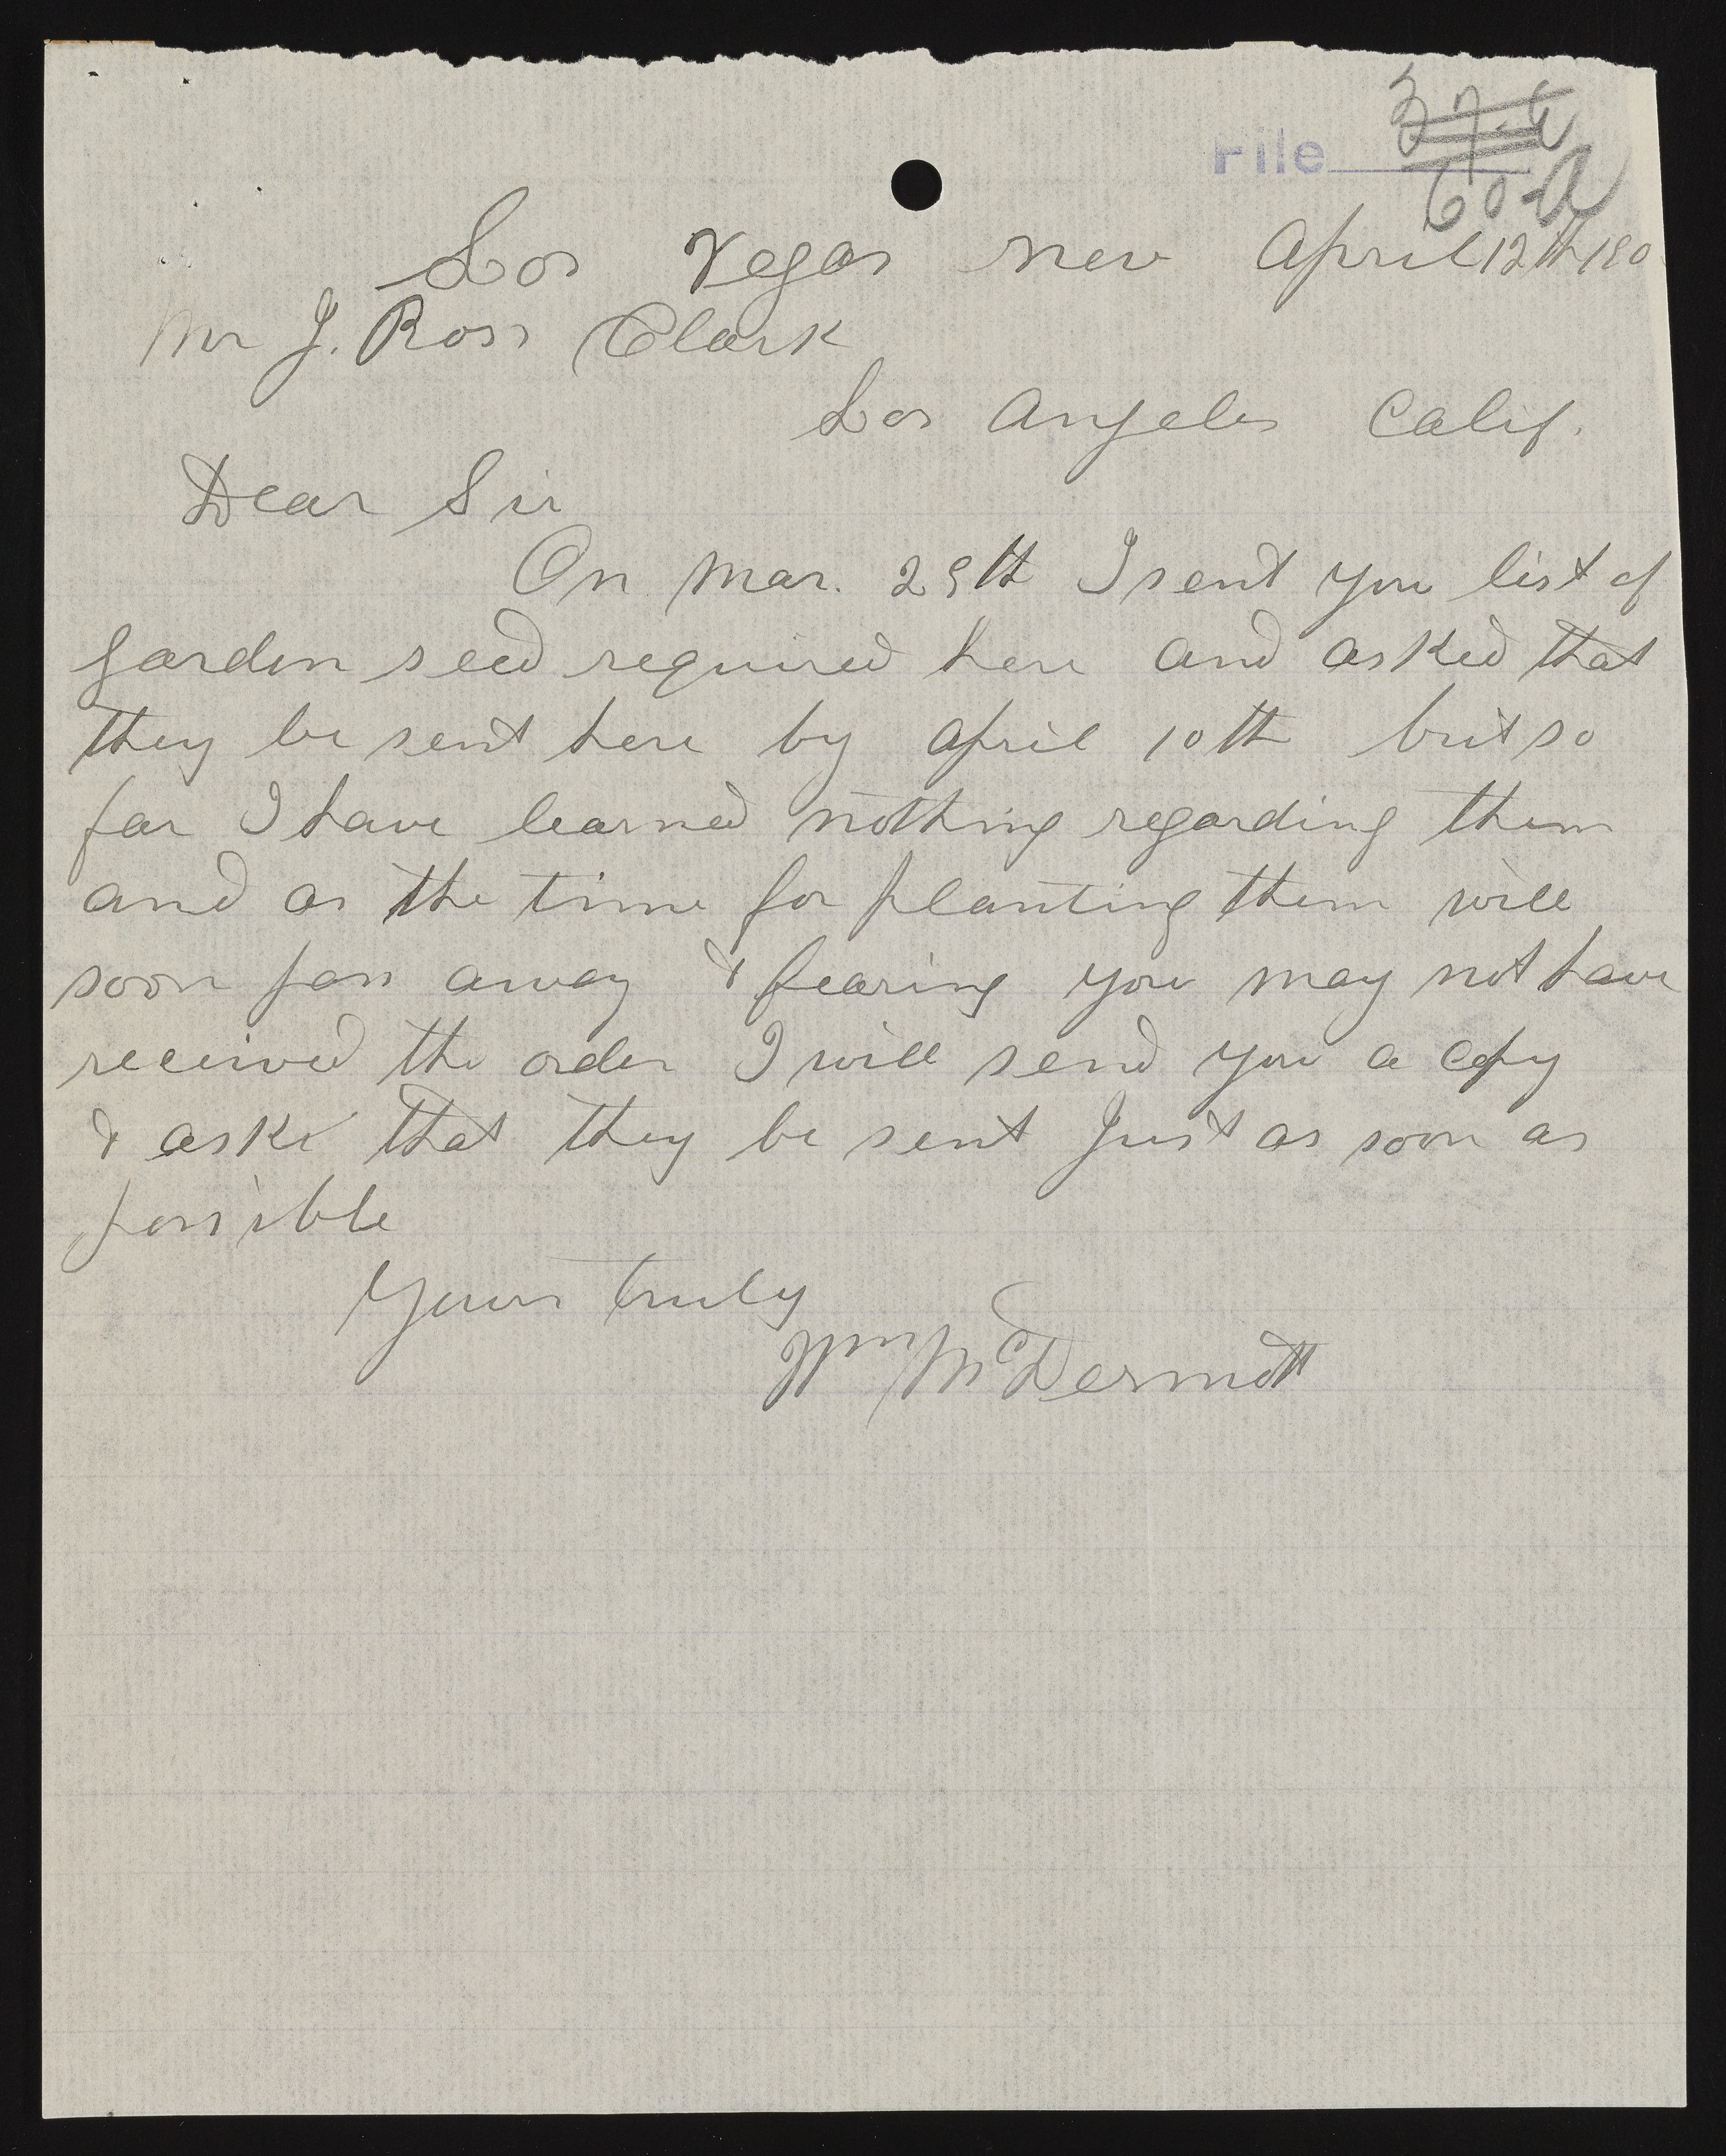 File 37-A
60-A
Las Vegas Nev April 12th 190
Mr J. Ross Clark
Los Angeles Calif.
Dear Sir
On Mar. 29th I sent you list of
garden seed required here and asked that
they be sent here by April 10th but so
far I have learned nothing regarding them
and as the time for planting them will
soon pass away & fearing you may not have
received the order I will send you a copy
& ask that they be sent Just as soon as
possible
Yours truly
Wm McDermott